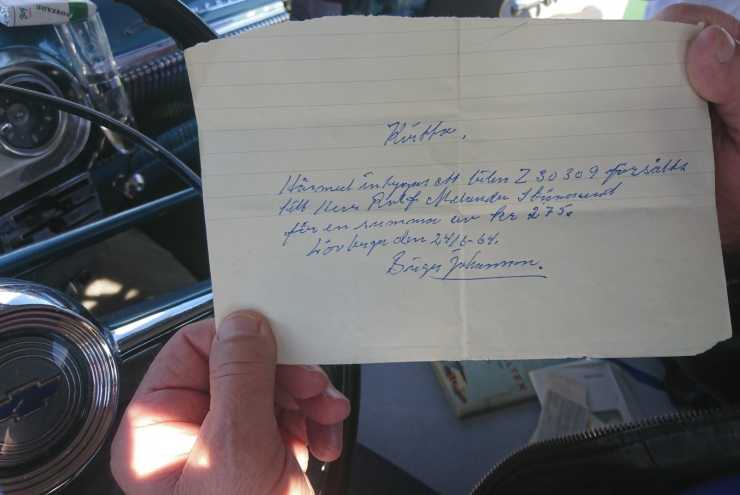 Kvitto.
Härmed intygas att bilen Z 30309 försålts
till Herr Melander
för en summa av kr 275.
Lövberga den 24/6-64.
Birger Johansson.